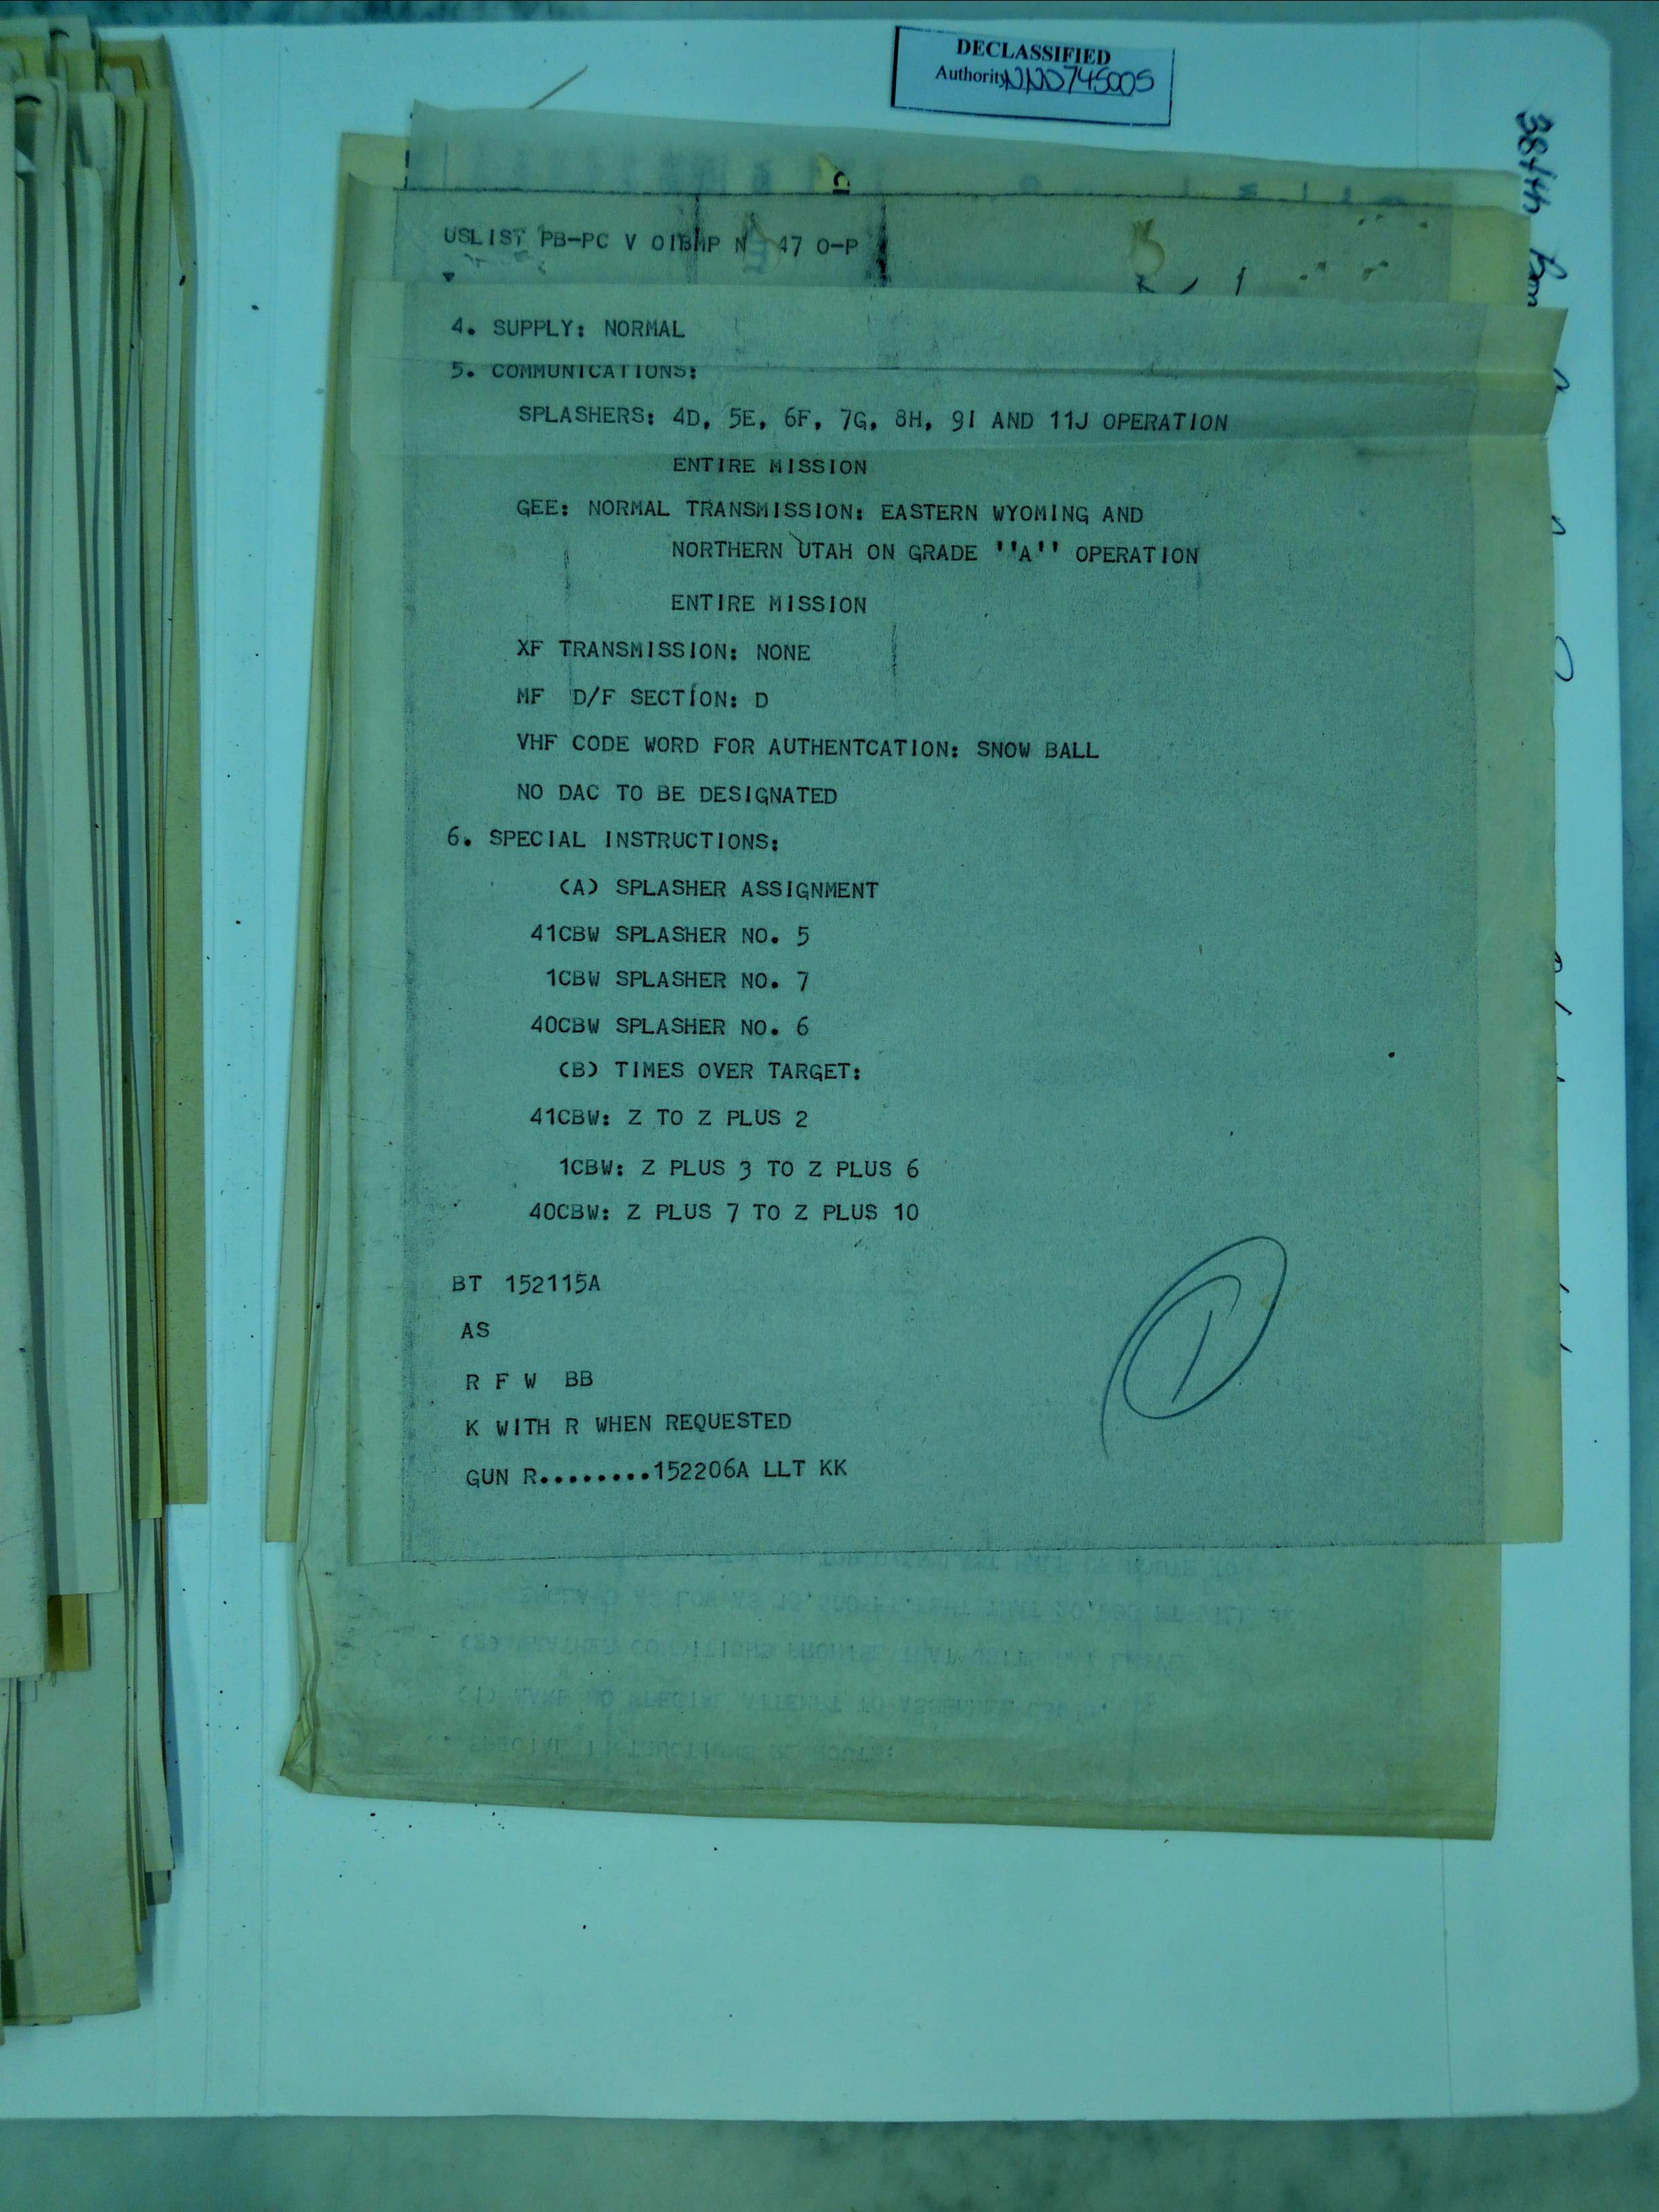 DECLASSIFIED
Authority NND745005
384th Bom
USLIST PB-PC V 01BMP N 47 O-P
4. SUPPLY: NORMAL
5. COMMUNICATIONS:
SPLASHERS: 4D, 5E, 6F, 7G, 8H, 9I AND 11J OPERATION
ENTIRE MISSION
GEE: NORMAL TRANSMISSION: EASTERN WYOMING AND
NORTHERN UTAH ON GRADE ''A'' OPERATION
ENTIRE MISSION
XF TRANSMISSION: NONE
MF D/F SECTION: D
VHF CODE WORD FOR AUTHENTCATION: SNOW BALL
NO DAC TO BE DESIGNATED
6. SPECIAL INSTRUCTIONS:
(A) SPLASHER ASSIGNMENT
41CBW SPLASHER NO. 5
1CBW SPLASHER NO. 7
40CBW SPLASHER NO. 6
(B) TIMES OVER TARGET:
41CBW: Z TO Z PLUS 2
1CBW: Z PLUS 3 TO Z PLUS 6
40CBW: Z PLUS 7 TO Z PLUS 10
BT 152115A
AS
R F W BB
K WITH R WHEN REQUESTED
GUN R........152206A LLT KK